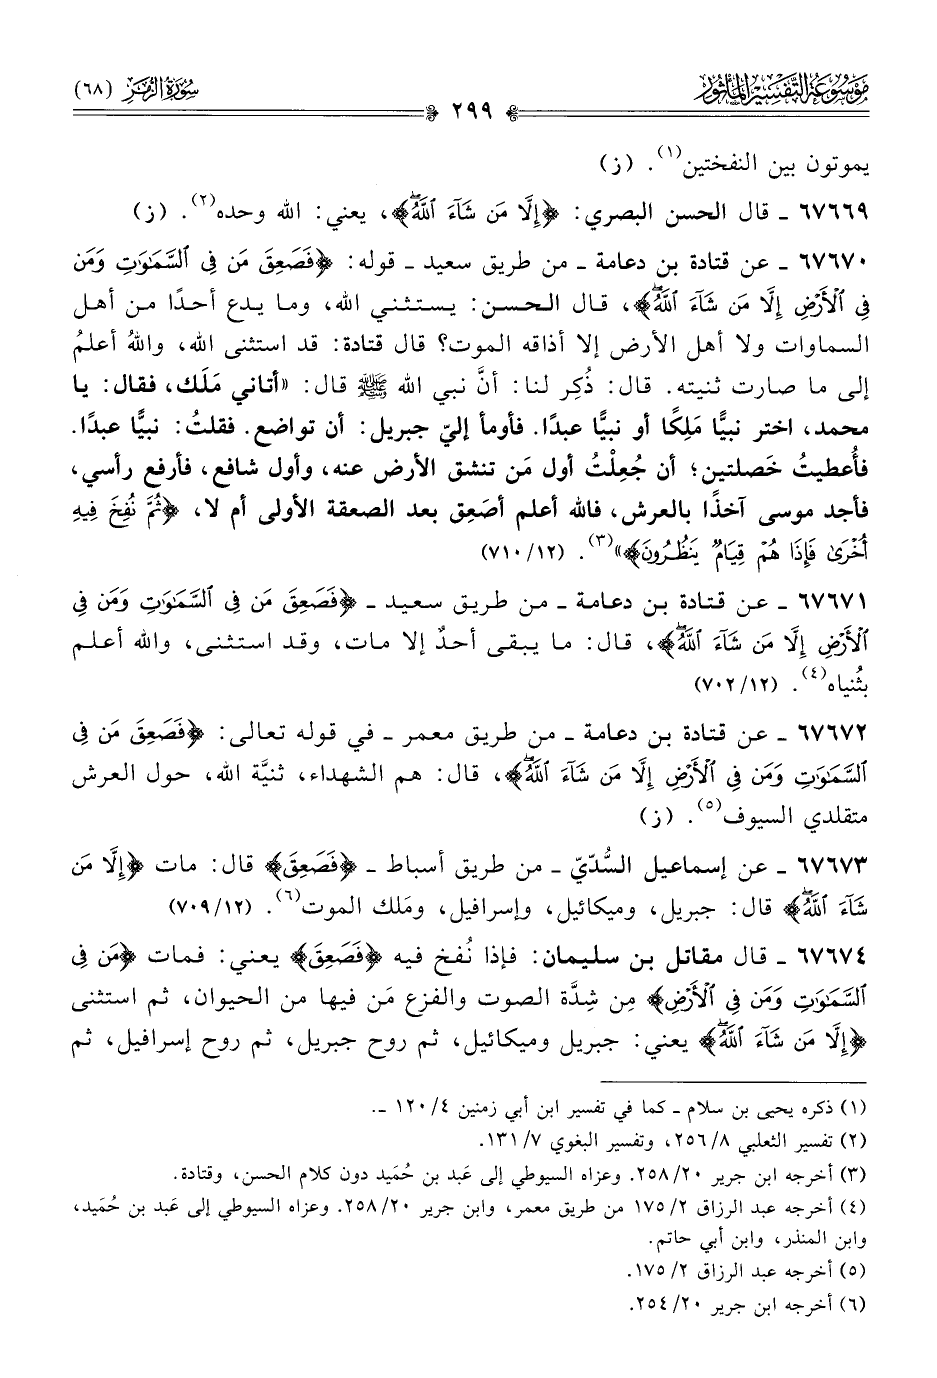 موسوعة التفسير المأثور
سورة الزمر (٦٨)
٢٩٩
يموتون بين النفختين(١). (ز)
٦٧٦٦٩ ـ قال الحسن البصري: ﴿إِلَّا مَن شَآءَ ٱللَّهُۖ﴾، يعني: الله وحده(٢). (ز)
٦٧٦٧٠ ـ عن قتادة بن دعامة ـ من طريق سعيد ـ قوله: ﴿فَصَعِقَ مَن فِي ٱلسَّمَٰوَٰتِ وَمَن
فِي ٱلْأَرْضِ إِلَّا مَن شَآءَ ٱللَّهُۖ﴾، قال الحسن: يستثني الله، وما يدع أحدًا من أهل
السماوات ولا أهل الأرض إلا أذاقه الموت؟ قال قتادة: قد استثنى الله، واللهُ أعلمُ
إلى ما صارت ثنيته. قال: ذُكِر لنا: أنَّ نبي الله ﷺ قال: «أتاني مَلَك، فقال: يا
محمد، اختر نبيًّا مَلِكًا أو نبيًّا عبدًا. فأومأ إليّ جبريل: أن تواضع. فقلتُ: نبيًّا عبدًا.
فأُعطيتُ خَصلتين؛ أن جُعِلْتُ أول مَن تنشق الأرض عنه، وأول شافع، فأرفع رأسي،
فأجد موسى آخذًا بالعرش، فالله أعلم أصَعِق بعد الصعقة الأولى أم لا، ﴿ثُمَّ نُفِخَ فِيهِ
أُخْرَىٰ فَإِذَا هُمْ قِيَامٌ يَنظُرُونَ﴾»(٣). (٧١٠/١٢)
٦٧٦٧١ ـ عن قتادة بن دعامة ـ من طريق سعيد ـ ﴿فَصَعِقَ مَن فِي ٱلسَّمَٰوَٰتِ وَمَن فِي
ٱلْأَرْضِ إِلَّا مَن شَآءَ ٱللَّهُۖ﴾، قال: ما يبقى أحدٌ إلا مات، وقد استثنى، والله أعلم
بثُنياه(٤). (٧٠٢/١٢)
٦٧٦٧٢ ـ عن قتادة بن دعامة ـ من طريق معمر ـ في قوله تعالى: ﴿فَصَعِقَ مَن فِي
ٱلسَّمَٰوَٰتِ وَمَن فِي ٱلْأَرْضِ إِلَّا مَن شَآءَ ٱللَّهُۖ﴾، قال: هم الشهداء، ثنيَّة الله، حول العرش
متقلدي السيوف(٥). (ز)
٦٧٦٧٣ ـ عن إسماعيل السُّدّيّ ـ من طريق أسباط ـ ﴿فَصَعِقَ﴾ قال: مات ﴿إِلَّا مَن
شَآءَ ٱللَّهُۖ﴾ قال: جبريل، وميكائيل، وإسرافيل، ومَلك الموت(٦). (٧٠٩/١٢)
٦٧٦٧٤ ـ قال مقاتل بن سليمان: فإذا نُفخ فيه ﴿فَصَعِقَ﴾ يعني: فمات ﴿مَن فِي
ٱلسَّمَٰوَٰتِ وَمَن فِي ٱلْأَرْضِ﴾ مِن شِدَّة الصوت والفزع مَن فيها من الحيوان، ثم استثنى
﴿إِلَّا مَن شَآءَ ٱللَّهُۖ﴾ يعني: جبريل وميكائيل، ثم روح جبريل، ثم روح إسرافيل، ثم
(١) ذكره يحيى بن سلام ـ كما في تفسير ابن أبي زمنين ١٢٠/٤ ـ.
(٢) تفسير الثعلبي ٢٥٦/٨، وتفسير البغوي ١٣١/٧.
(٣) أخرجه ابن جرير ٢٥٨/٢٠. وعزاه السيوطي إلى عَبد بن حُمَيد دون كلام الحسن، وقتادة.
(٤) أخرجه عبد الرزاق ١٧٥/٢ من طريق معمر، وابن جرير ٢٥٨/٢٠. وعزاه السيوطي إلى عَبد بن حُمَيد،
وابن المنذر، وابن أبي حاتم.
(٥) أخرجه عبد الرزاق ١٧٥/٢.
(٦) أخرجه ابن جرير ٢٥٤/٢٠.